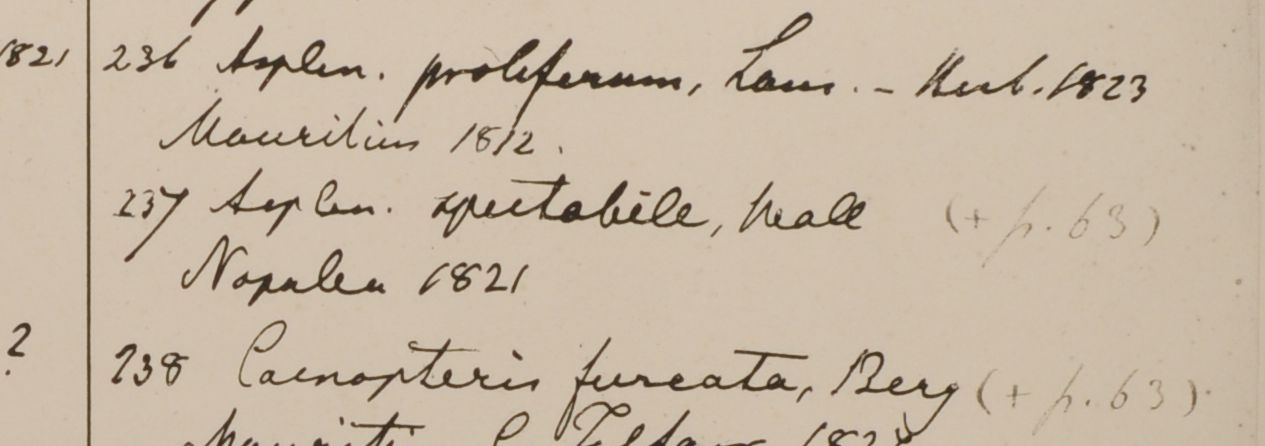 1821 236 Asplen. proliferum, Lam. - Herb. 1823
Mauritius 1812.
237 Asplen. spectabile, Wall (+ p. 63)
Nopalea 1821
? 238 Caenopteris furcata, Berg (+ p. 63)
Mauriti